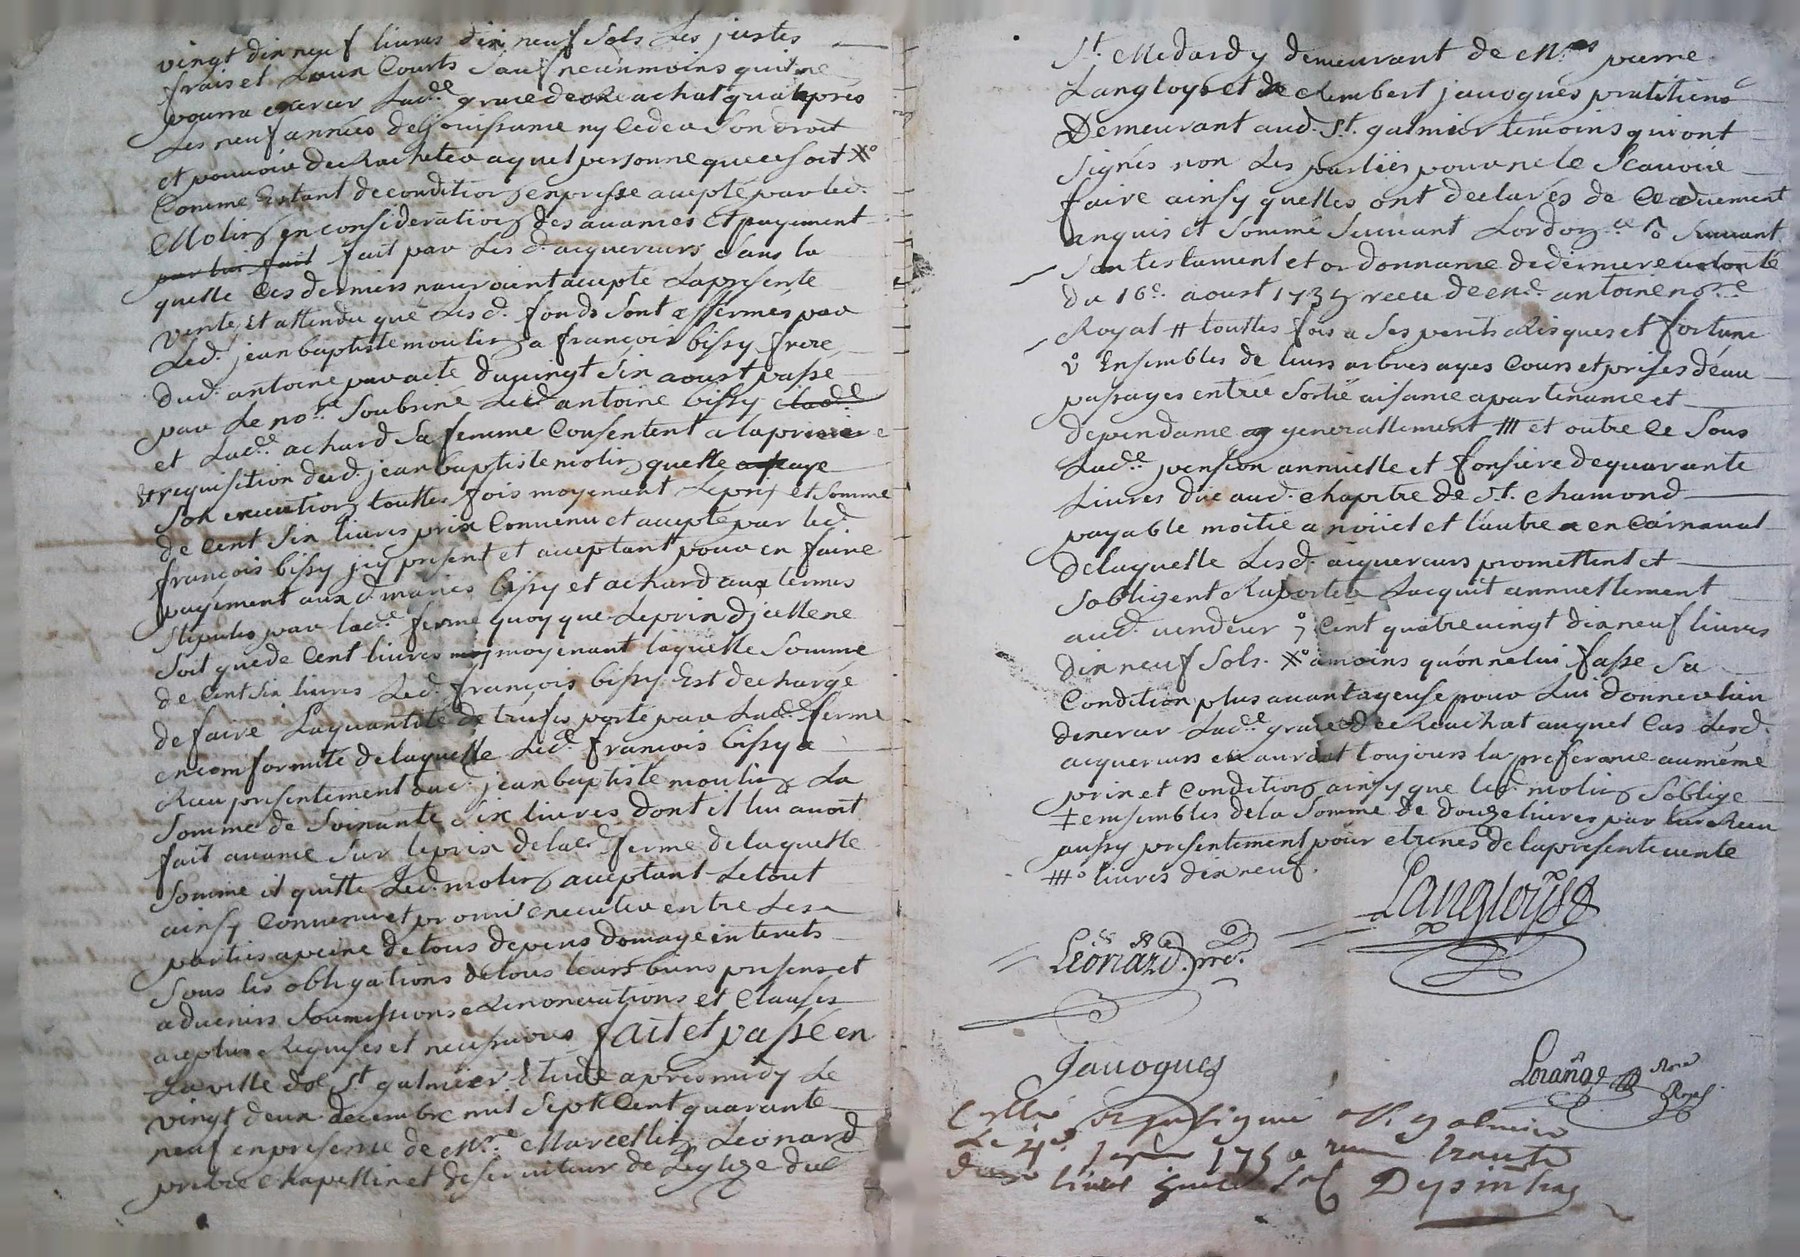 vingt dix neuf livres dix neuf sols les justes
frais et Loux Courts Sauf neanmoins quil ne
pourra exercer Lad.e grace de Rachat qu'après
Les neuf années de Jouissance ny Ceder Son droit
et pouvoir de Racheter a quel personne que ce soit X°
Comme Estant de condition expresse acepté par led.
Molin en consideration des avances Et payement
par lui fait fait par Les d. acquereurs sans la
quelle Ces derniers nauroient acepté La presente
vente, Et attendu que Les d. fonds Sont affermés par
Led. jean baptiste moulin a françois bissy frere
dud. antoine par acte du vingt six aoust passé
par Le no.re Soubsiné Led. antoine bissy Lad.e
et Lad.e achard Sa femme Consentent a la premiere
requisition dud. jean baptiste molin quelle aye
Son execution touttes fois moyenant Le prix et somme
de Cent Six livres prix Convenu et accepté par led.
françois bissy jcy present et aceptant pour en faire
payement aux d. mariés bissy et achard aux termes
stipules par lad.e ferme quoy que Le prix djcelle ne
soit que de Cent livres moyenant laquelle Somme
de Cent Six livres Led. françois bissy Est decharge
de faire La quantité de trufes porté par Lad.e ferme
en conformité de laquelle Led. françois bissy a
Recu presentement dud. jean baptiste moulin La
Somme de Soixante Six livres dont il lui avoit
fait avance Sur le prix de lad. ferme de laquelle
Somme il quitte Led. molin aceptant Le tout
ainsy Convenu et promis executer entre Les
parties a peine de tous depens domage interets
Sous les obligations de tous leurs biens presens et
advenirs Soumissions Renonciations et Clauses
a ce plus Requises et necessaires fait et passé en
La ville de St galmier Etude apres midy Le
vingt deux decembre mil Sept Cent quarante
neuf en presence de M.re Marcellin Leonard
prebre Chapellin et deserviteur de Leglize de
St. Medard y demeurant de M.re pierre
Langloys et de Rembert javogues pratitiens
Demeurant aud. St. galmier temoins qui ont
Signés non Les parties pour ne le Scavoir
faire ainsy quelles ont declarés de Ce duement
enquis et sommé Suivant Lordon.ce ō Suivant
Son testament et ordonnance de derniere volonté
du 16e. aoust 1735 receu de M.e antoine no.re
Royal # touttes fois a Ses perils Risques et fortune
ṽ Ensembles de leurs arbres ayes Cours et prises d'eau
passages entrée Sortie aisance apartenance et
dependance generallement # et outre Ce Sous
Lad.e pension annuelle et fonsiere de quarante
Livres due aud. chapitre de St. chamond
payable moitie a noüel et l'autre en Carnaval
de laquelle Les d. acquereurs promettent et
Sobligent Raporter Lacquit annuellement
aud. vendeur 7° Cent quatre vingt dix neuf livres
dix neuf sols. X° a moins quon ne lui fasse Sa
Condition plus avantageuse pour Lui donner lieu
dexercer Lad.e grace de Reachat auquel Cas Lesd.
acquereurs en auront toujours la preferance au même
prix et Condition ainsy que led. molin Soblige
‡ ensembles de la Somme de douze livres par lui Recu
aussy presentement pour etrenes de la presente vente
#° livres dix neuf.
Langloys
Leonard. pre.
Javogues
Lorange no.re Royal
Collé
Le 4e 1750 recu trente
livres sols